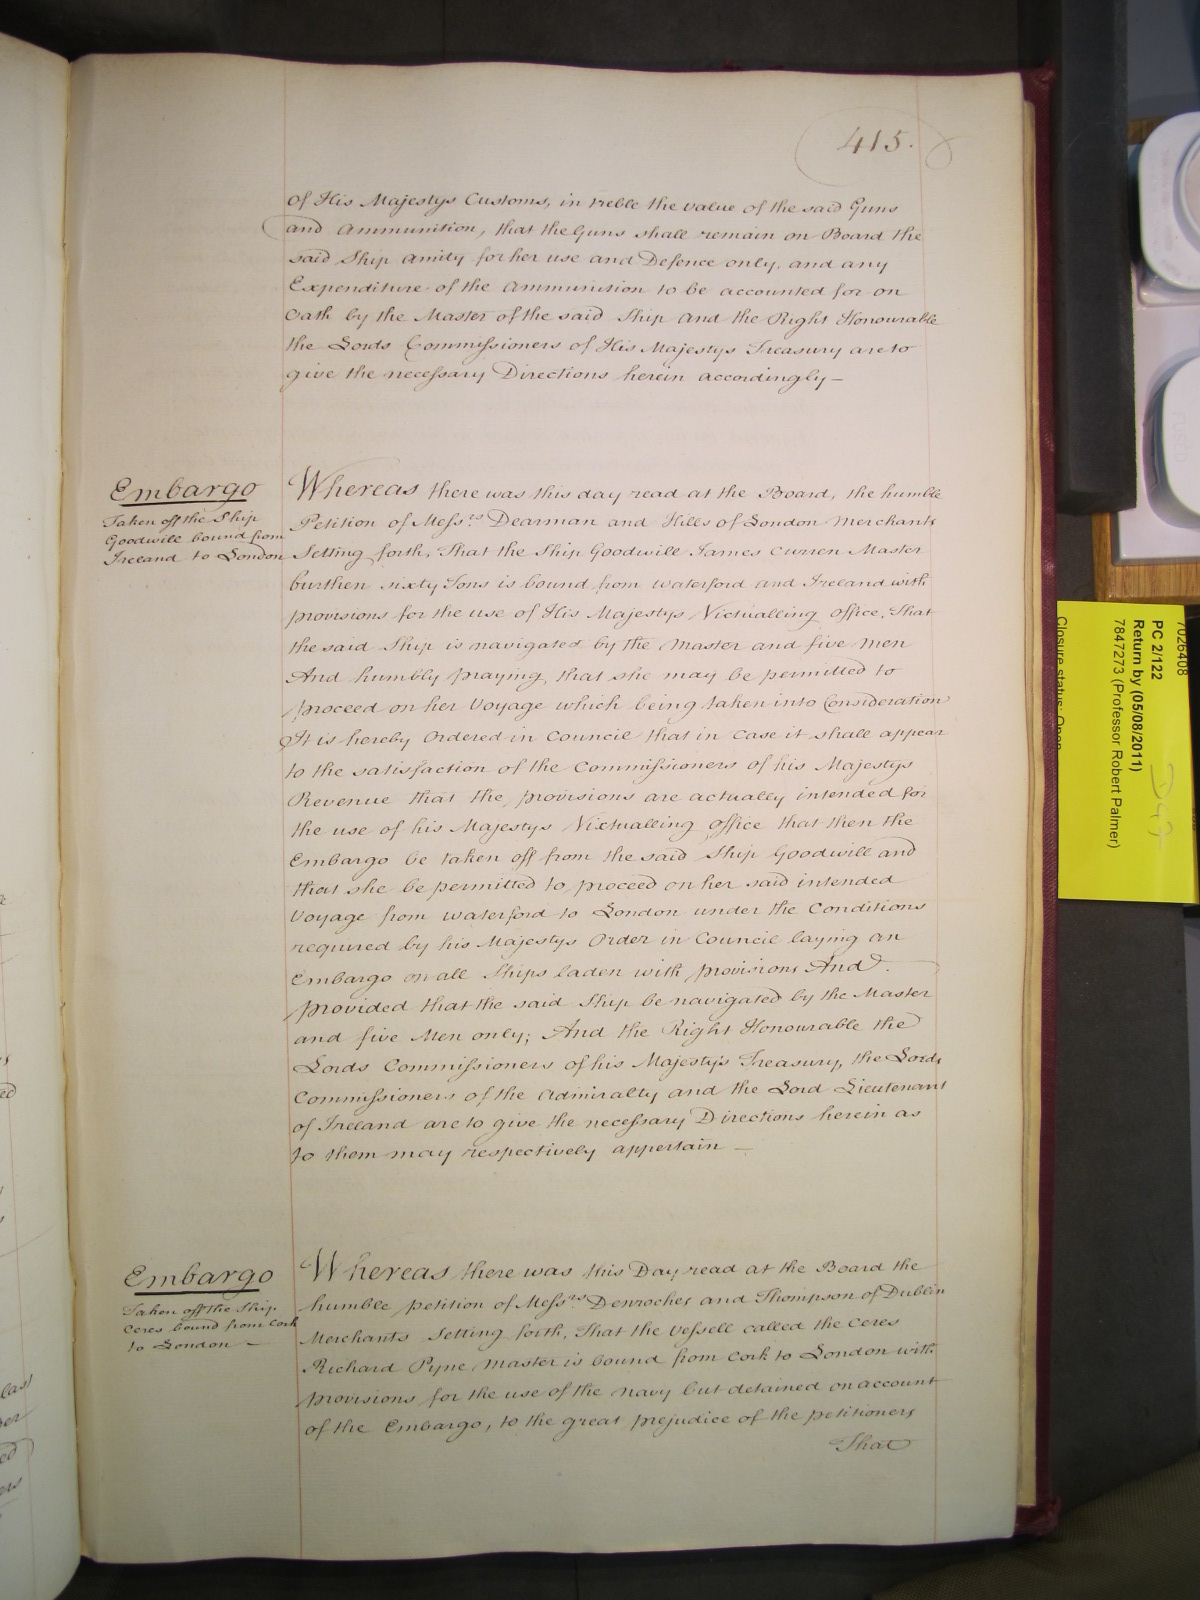 415.
of His Majestys Customs, in treble the value of the said Guns
and Ammunition, that the Guns shall remain on Board the
said Ship Amity for her use and Defence only, and any
Expenditure of the Ammunition to be accounted for on
Oath by the Master of the said Ship and the Right Honourable
the Lords Commissioners of His Majestys Treasury are to
give the necessary Directions herein accordingly —
Embargo
Taken off the Ship
Goodwill bound from
Ireland to London
Whereas there was this day read at the Board, the humble
Petition of Messrs Dearman and Hills of London Merchants
Setting forth, That the Ship Goodwill James Curren Master
burthen sixty Tons is bound from Waterford and Ireland with
provisions for the use of His Majestys Victualling Office, That
the said Ship is navigated by the Master and five Men
And humbly praying, that she may be permitted to
proceed on her Voyage which being taken into Consideration
It is hereby Ordered in Council that in Case it shall appear
to the satisfaction of the Commissioners of his Majestys
Revenue that the provisions are actually intended for
the use of his Majestys Victualling Office that then the
Embargo be taken off from the said Ship Goodwill and
that she be permitted to proceed on her said intended
Voyage from Waterford to London under the Conditions
required by his Majestys Order in Council laying an
Embargo on all Ships laden with provisions And
provided that the said Ship be navigated by the Master
and five Men only; And the Right Honourable the
Lords Commissioners of his Majesty's Treasury, the Lords
Commissioners of the Admiralty and the Lord Lieutenant
of Ireland are to give the necessary Directions herein as
to them may respectively appertain —
Embargo
Taken off the Ship
Ceres bound from Cork
to London —
Whereas there was this Day read at the Board the
humble petition of Messrs Denroches and Thompson of Dublin
Merchants Setting forth, That the Vessell called the Ceres
Richard Pyne Master is bound from Cork to London with
provisions for the use of the Navy but detained on account
of the Embargo, to the great prejudice of the petitioners
That
7026408
PC 2/122
Return by (05/08/2011)
7847273 (Professor Robert Palmer)
Closure status: Open